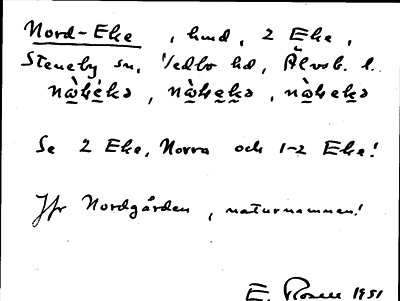 Nord-Eke, hmd, 2 Eke,
Steneby sn, Vedbo hd, Älvsb. l.
Se 2 Eke, Norra och 1-2 Eke!
Jfr Nordgården, naturnamnen!
E. Rosell 1951